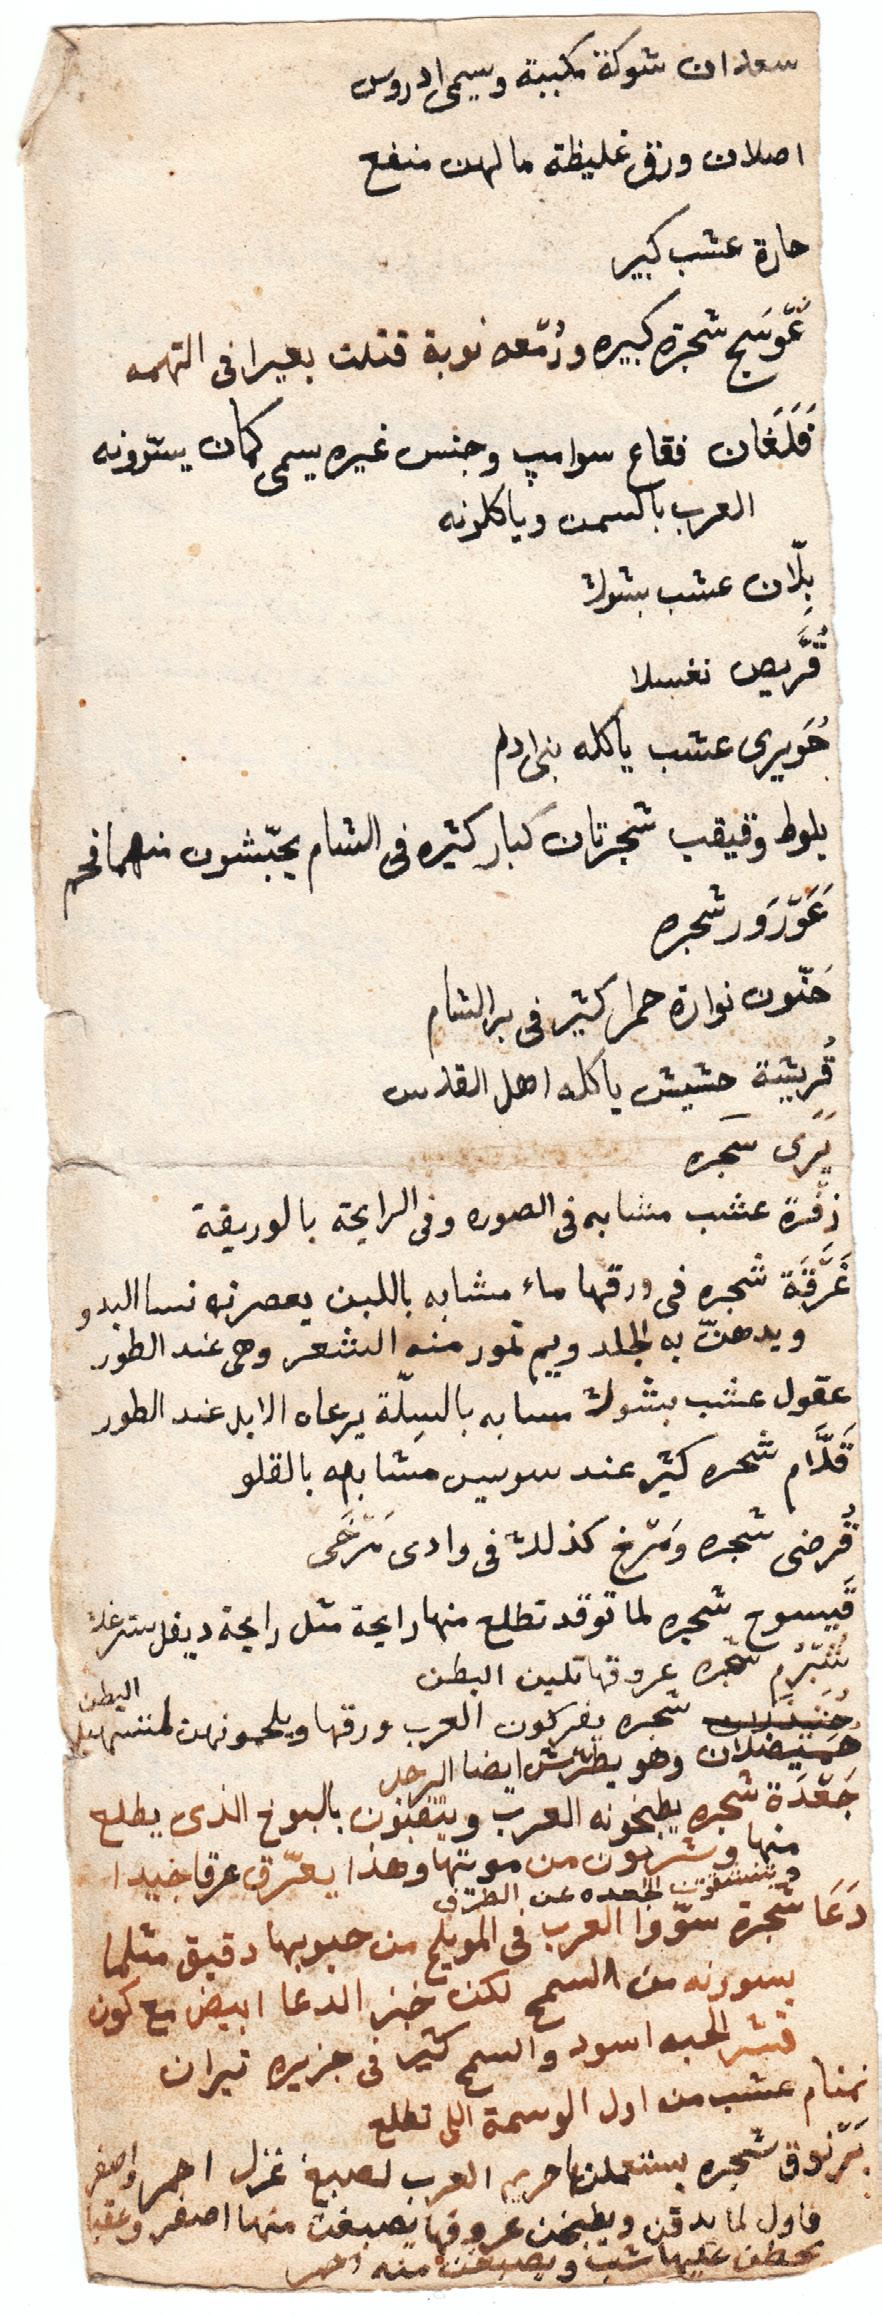 سعدان شوكة مكببة ويسمى ادروس
اصلان ورق غليظة ما لهن منفع
حارة عشب كبير
عَوّسَج شجرة كبيره ودُمّعه نوبة قتلت بعيرا فى التهمه
فَلَغَان فقاع سوامپ وجنس غيره يسمى كمان يسّرونه
العرب بالسمن وياكلونه
بِلّان عشب بشوك
قُرَّيص نغسلا
حُويرى عشب ياكله بنى ادم
بلوط وقيقب شجرتان كبار كثيره فى الشام يحبّشون منهما فحم
عَوّرَوَر شجره
حَنّون نوارة حمرا كثير فى بر الشام
قُريشية حشيش ياكله اهل القدس
يَرَى سجره
زفّرة عشب مشابه فى الصوره وفى الرايحة بالوريقة
غَرَّقَة شجره فى ورقها ماء مشابه باللبن يعصرنه نسا البدو
ويدهنّ به الجلد ويتمور منه الشعر وهى عند الطور
عقول عشب بشوك مسابه بالسِلّة يرعاه الابل عند الطور
قَلَّام شجره كثير عند سويس مشابهه بالقلو
قُرضى شجره ومَرّخ كذلك فى وادى مَرّخَى
قَيسوح شجره لما توقد تطلع منها رايحة مثل رايحة ديفلسترغك
شُبّرُم شجره عروقها تلين البطن
شجره يفركون العرب ورقها ويلحونهن لتسهيل البطن
حُميضلان وهو يطرّش ايضا الرجل
جَعّدَة شجره يطبخونه العرب ويتهبنون بالبوخ الذى يطلع
منها وشربون من مويتها وهذا يعرّق عرقا جيدا
وينشقون الجعده عن الطرف
دَعَا شجرة سوّوا العرب فى المويلح من حبوبها دقيق مثلما
يسوونه من السمح لكن خبز الدعا ابيض مع كون
قشر الحبه اسود والسمح كثير فى جزيره تيران
نمنام عشب من اول الوسمة اللى تطلع
بَرّنوق شجره يستعملنها حريم العرب لصبغ غزل احمر واصفر
فاول لما يدقن ويطبخن عروقها يصبغن منها اصفر وعقبا
يحطن عليها شب ويصبغن منه احمر